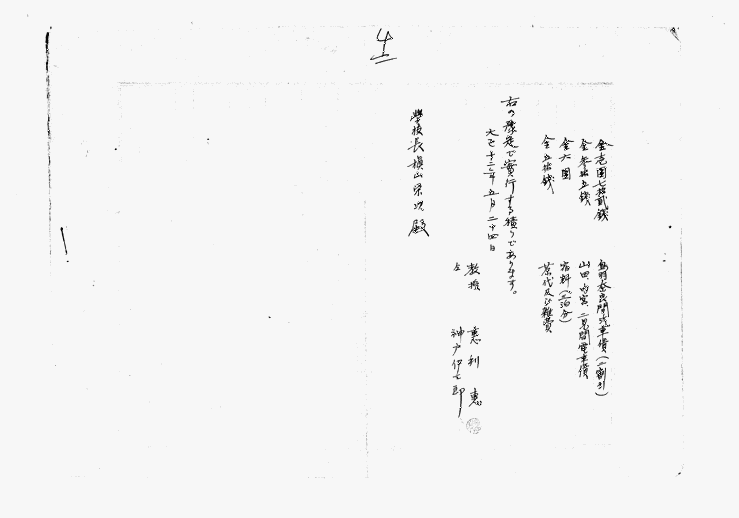 金壱圓七拾貳銭 鳥羽奈良間汽車賃(二割引)
金参拾五銭 山田、内宮、二見間電車賃
金六圓 宿料(三泊分)
金五拾銭 茶代及ビ雑費
右の豫定で實行する積りであります。
大正十三年五月二十四日
教授 恵利恵
仝 神戸伊七郎
學校長槇山栄次殿